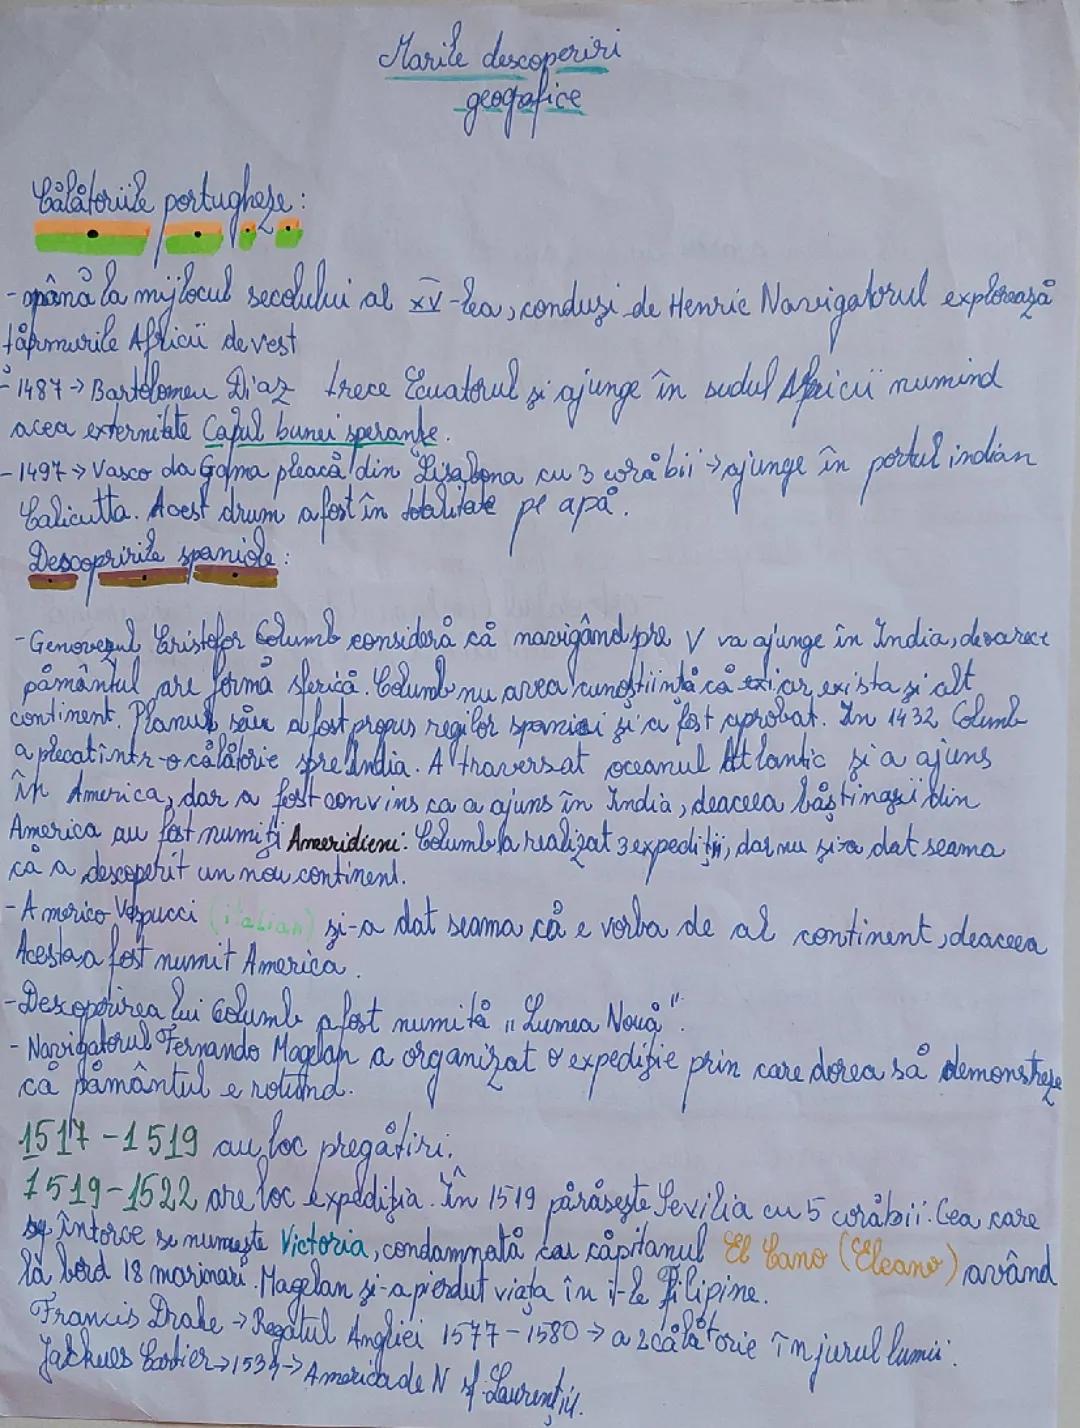 Marile descoperiri
geografice
Călătoriile portugheze:
-până la mijlocul secolului al XV-lea, conduși de Henric Navigatorul explorează
țărmurile Africii de vest
- 1487 → Bartolomeu Diaz trece Ecuatorul și ajunge în sudul Africii numind
acea externitate Capul bunei speranțe.
- 1497 → Vasco da Gama pleacă din Lisabona cu 3 corăbii → ajunge în portul indian
Calicutta. Acest drum a fost în totalitate pe apă.
Descopririle spaniole:
-Genovezul Cristofor Columb consideră că navigând spre V va ajunge în India, deoarece
pământul are formă sferică. Columb nu avea cunoștiință că ar exista și alt
continent. Planul său a fost propus regilor spanioi și a fost aprobat. In 1432 Columb
a plecat intr-o călătorie spre India. A traversat oceanul Atlantic și a ajuns
în America, dar a fost convins ca a ajuns în India, deaceea băștinașii din
America au fost numiți Ameridieni. Columb a realizat 3 expediții, dar nu și-a dat seama
că a descoperit un nou continent.
-Americo Vespucci (italian) și-a dat seama că e vorba de al continent, deaceea
Acesta a fost numit America.
-Descoperirea lui Columb a fost numită "Lumea Nouă".
- Navigatorul Fernando Magelan a organizat o expediție prin care dorea să demonstreze
că pământul e rotund.
1517-1519 au loc pregătiri.
1519-1522 are loc expediția. În 1519 părăsește Sevilia cu 5 corăbii. Cea care
se întorce se numește Victoria, condamnată cu căpitanul El Cano (Elcano) având
la bord 18 marinari. Magelan și-a pierdut viața în i-le Filipine.
Francis Drake → Regatul Angliei 1577-1580 → a 2 călătorie în jurul lumii.
Jackues Cartier → 1534 → America de N sf. Laurențiu.